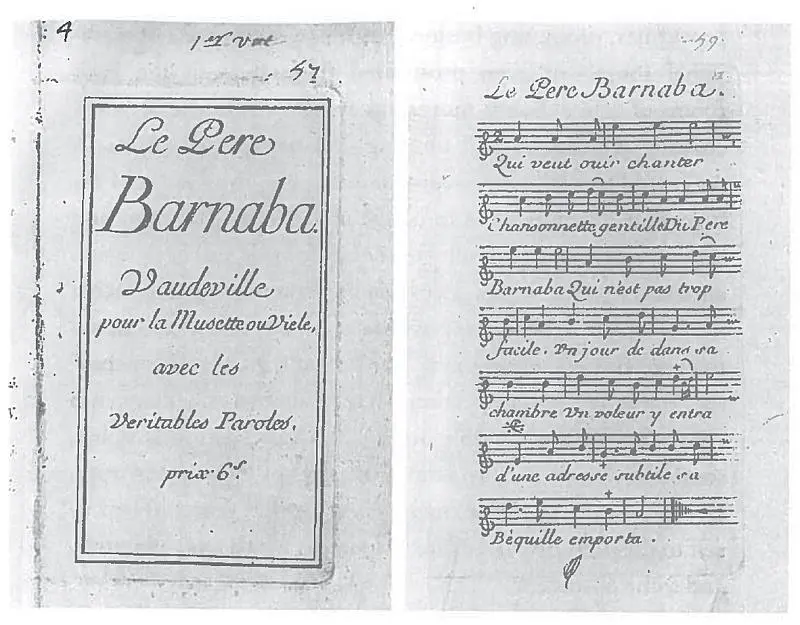 4
1er vol
57
Le Pere
Barnaba.
Vaudeville
pour la Musette ou Viele,
avec les
Veritables Paroles.
prix 6s.
59.
Le Pere Barnaba.
Qui veut ouir chanter
Chansonnette gentille Du Pere
Barnaba Qui n'est pas trop
facile. Un jour de dans sa
chambre Un voleur y entra
d'une adresse subtile sa
Béquille emporta.